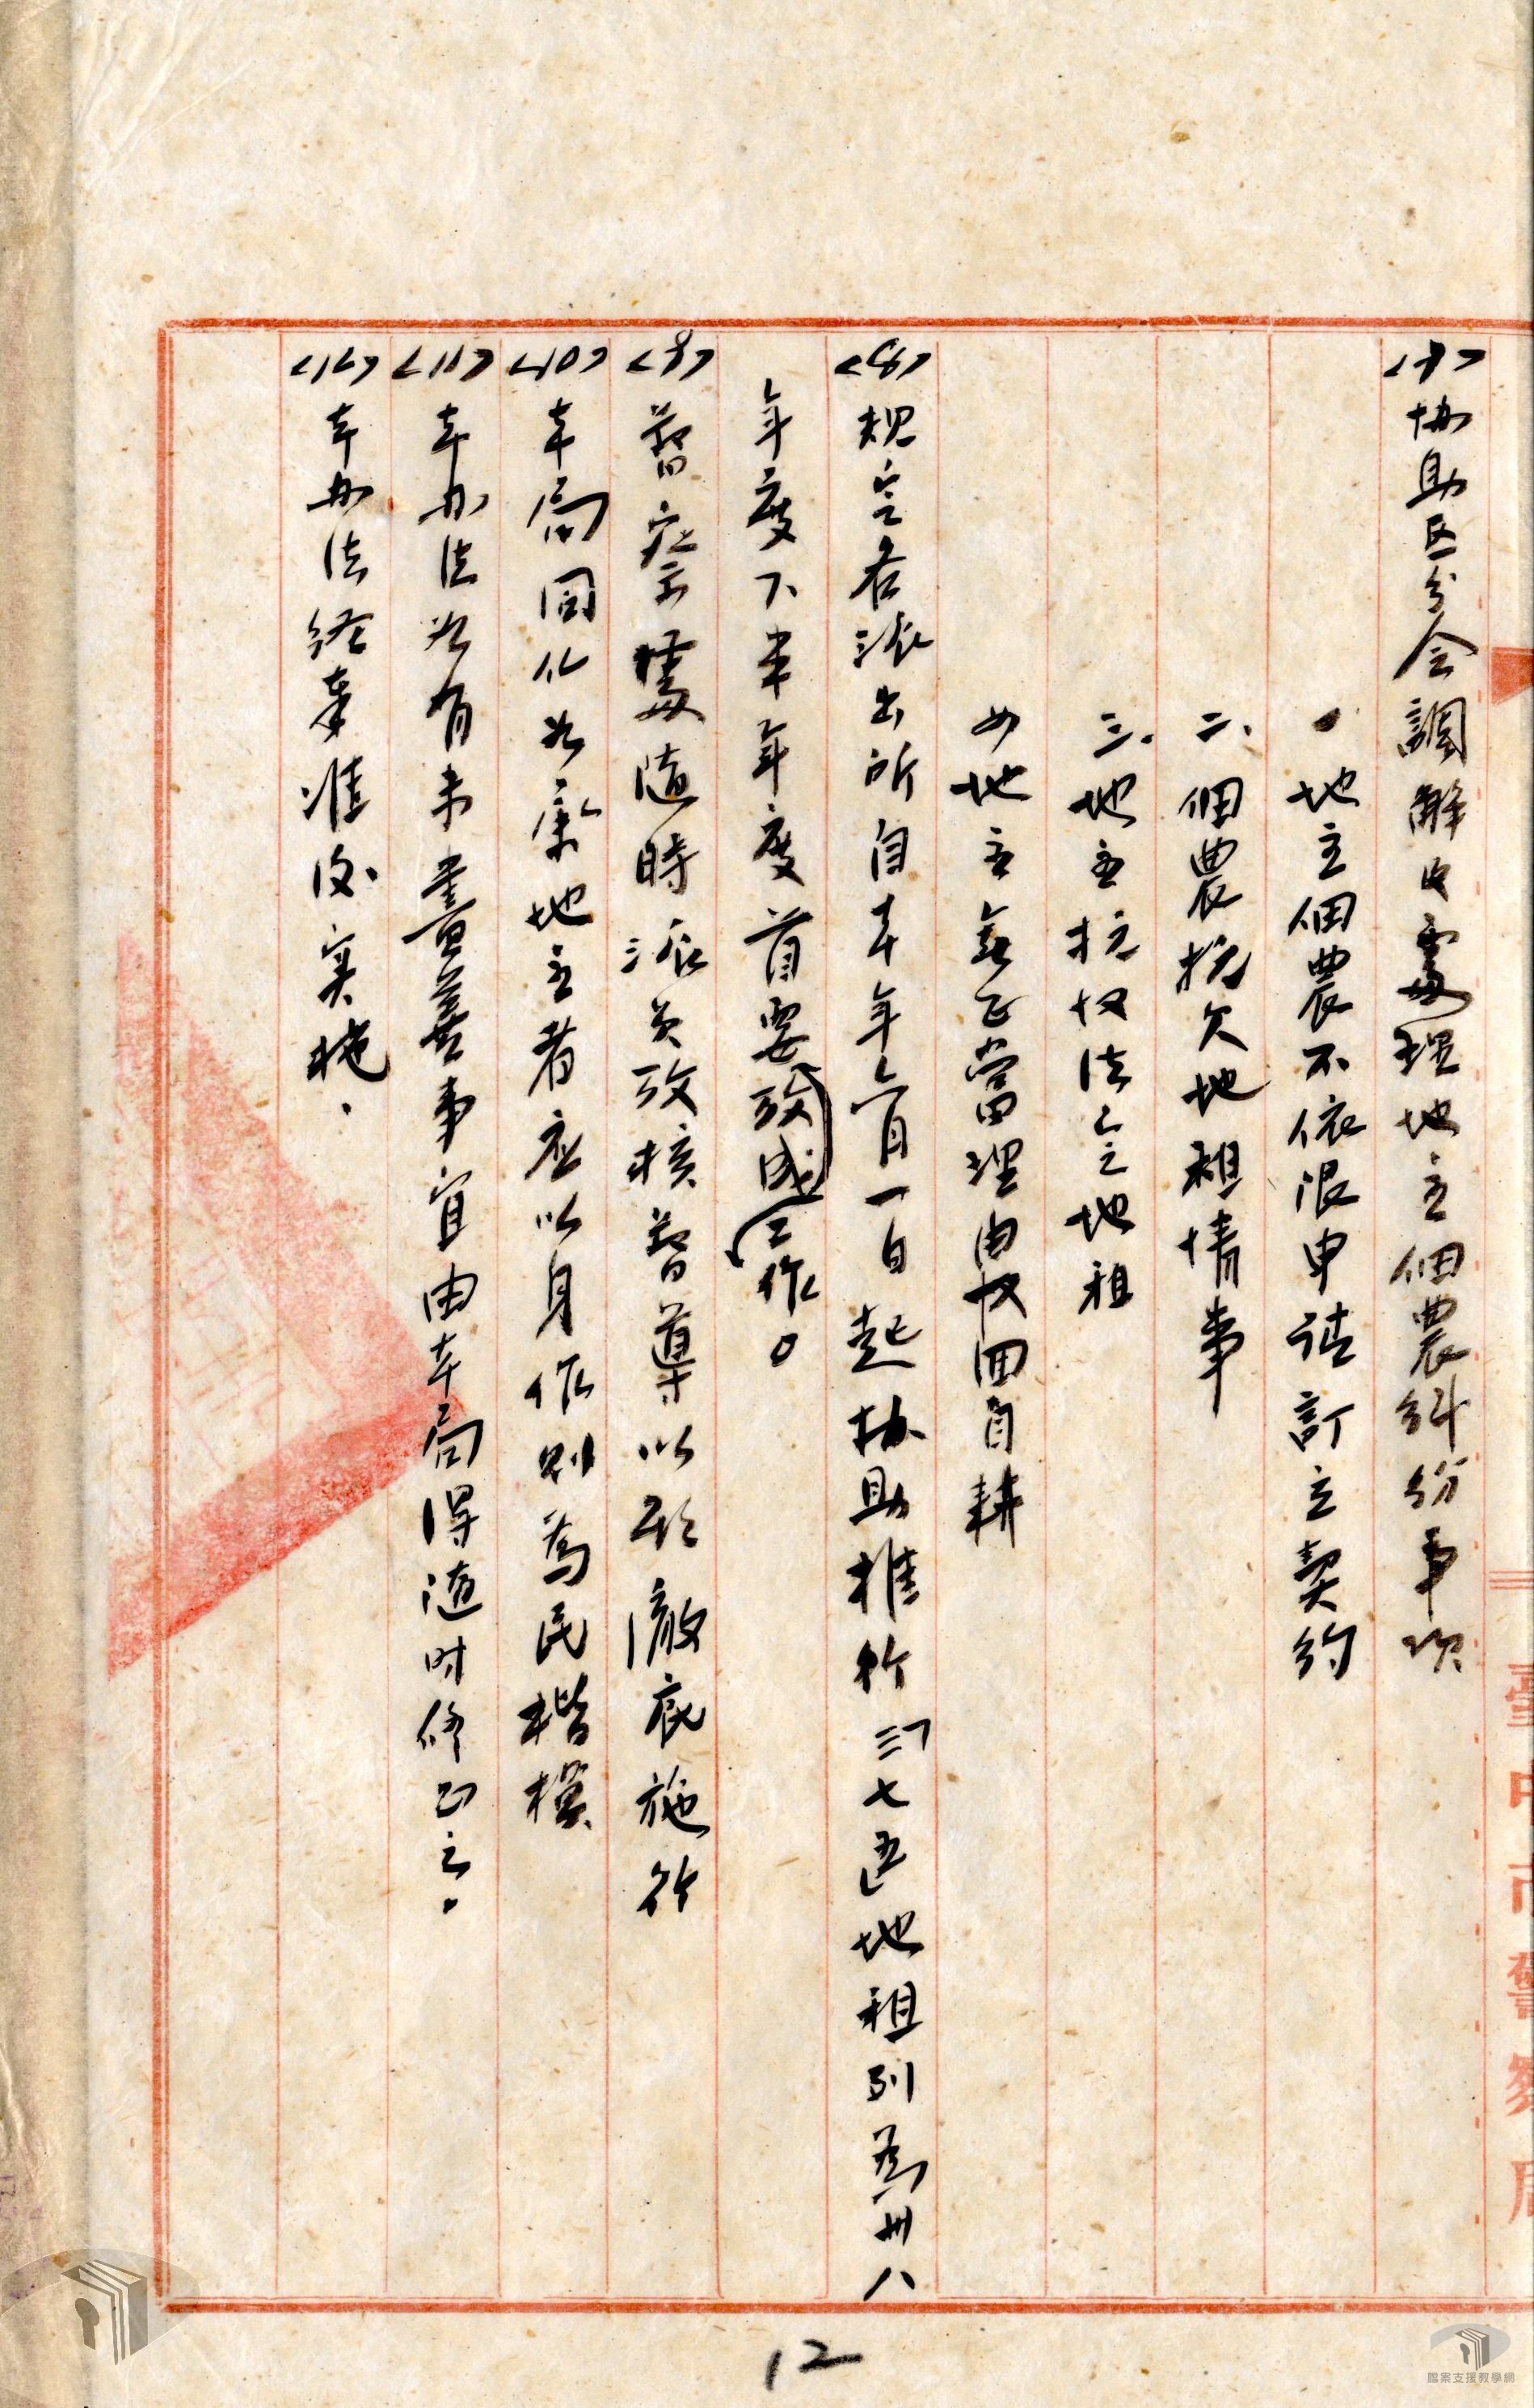 <7>協助区分会調解或處理地主佃農糾紛事項
1、地主佃農不依限申請訂立契約
二、佃農抗欠地租情事
三、地主抗收法定地租
四地主無正當理由收回自耕
<8>規定各派出所自本年六月一日起協助推行三七五地租列為卅八
年度下半年度首要考成工作。
<9>警察處隨時派員考核督導以期徹底施行
<10>本局同仁如兼地主者應以身作則為民楷模
<11>本办法如有未盡善事宜由本局得隨时修正之。
<12>本办法經奉准後实施.
臺中市警察局
12
檔案支援教學網